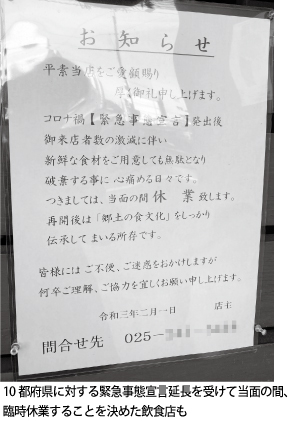 お知らせ
平素当店をご愛顧賜り
厚く御礼申し上げます。
コロナ禍【緊急事態宣言】発出後
御来店者数の激減に伴い
新鮮な食材をご用意しても無駄となり
破棄する事に心痛める日々です。
つきましては、当面の間 休 業 致します。
再開後は「郷土の食文化」をしっかり
伝承してまいる所存です。
皆様には ご不便、ご迷惑をおかけしますが
何卒ご理解、ご協力を宜しくお願い申し上げます。
令和三年二月一日 店主
問合せ先 025-
10都府県に対する緊急事態宣言延長を受けて当面の間、
臨時休業することを決めた飲食店も